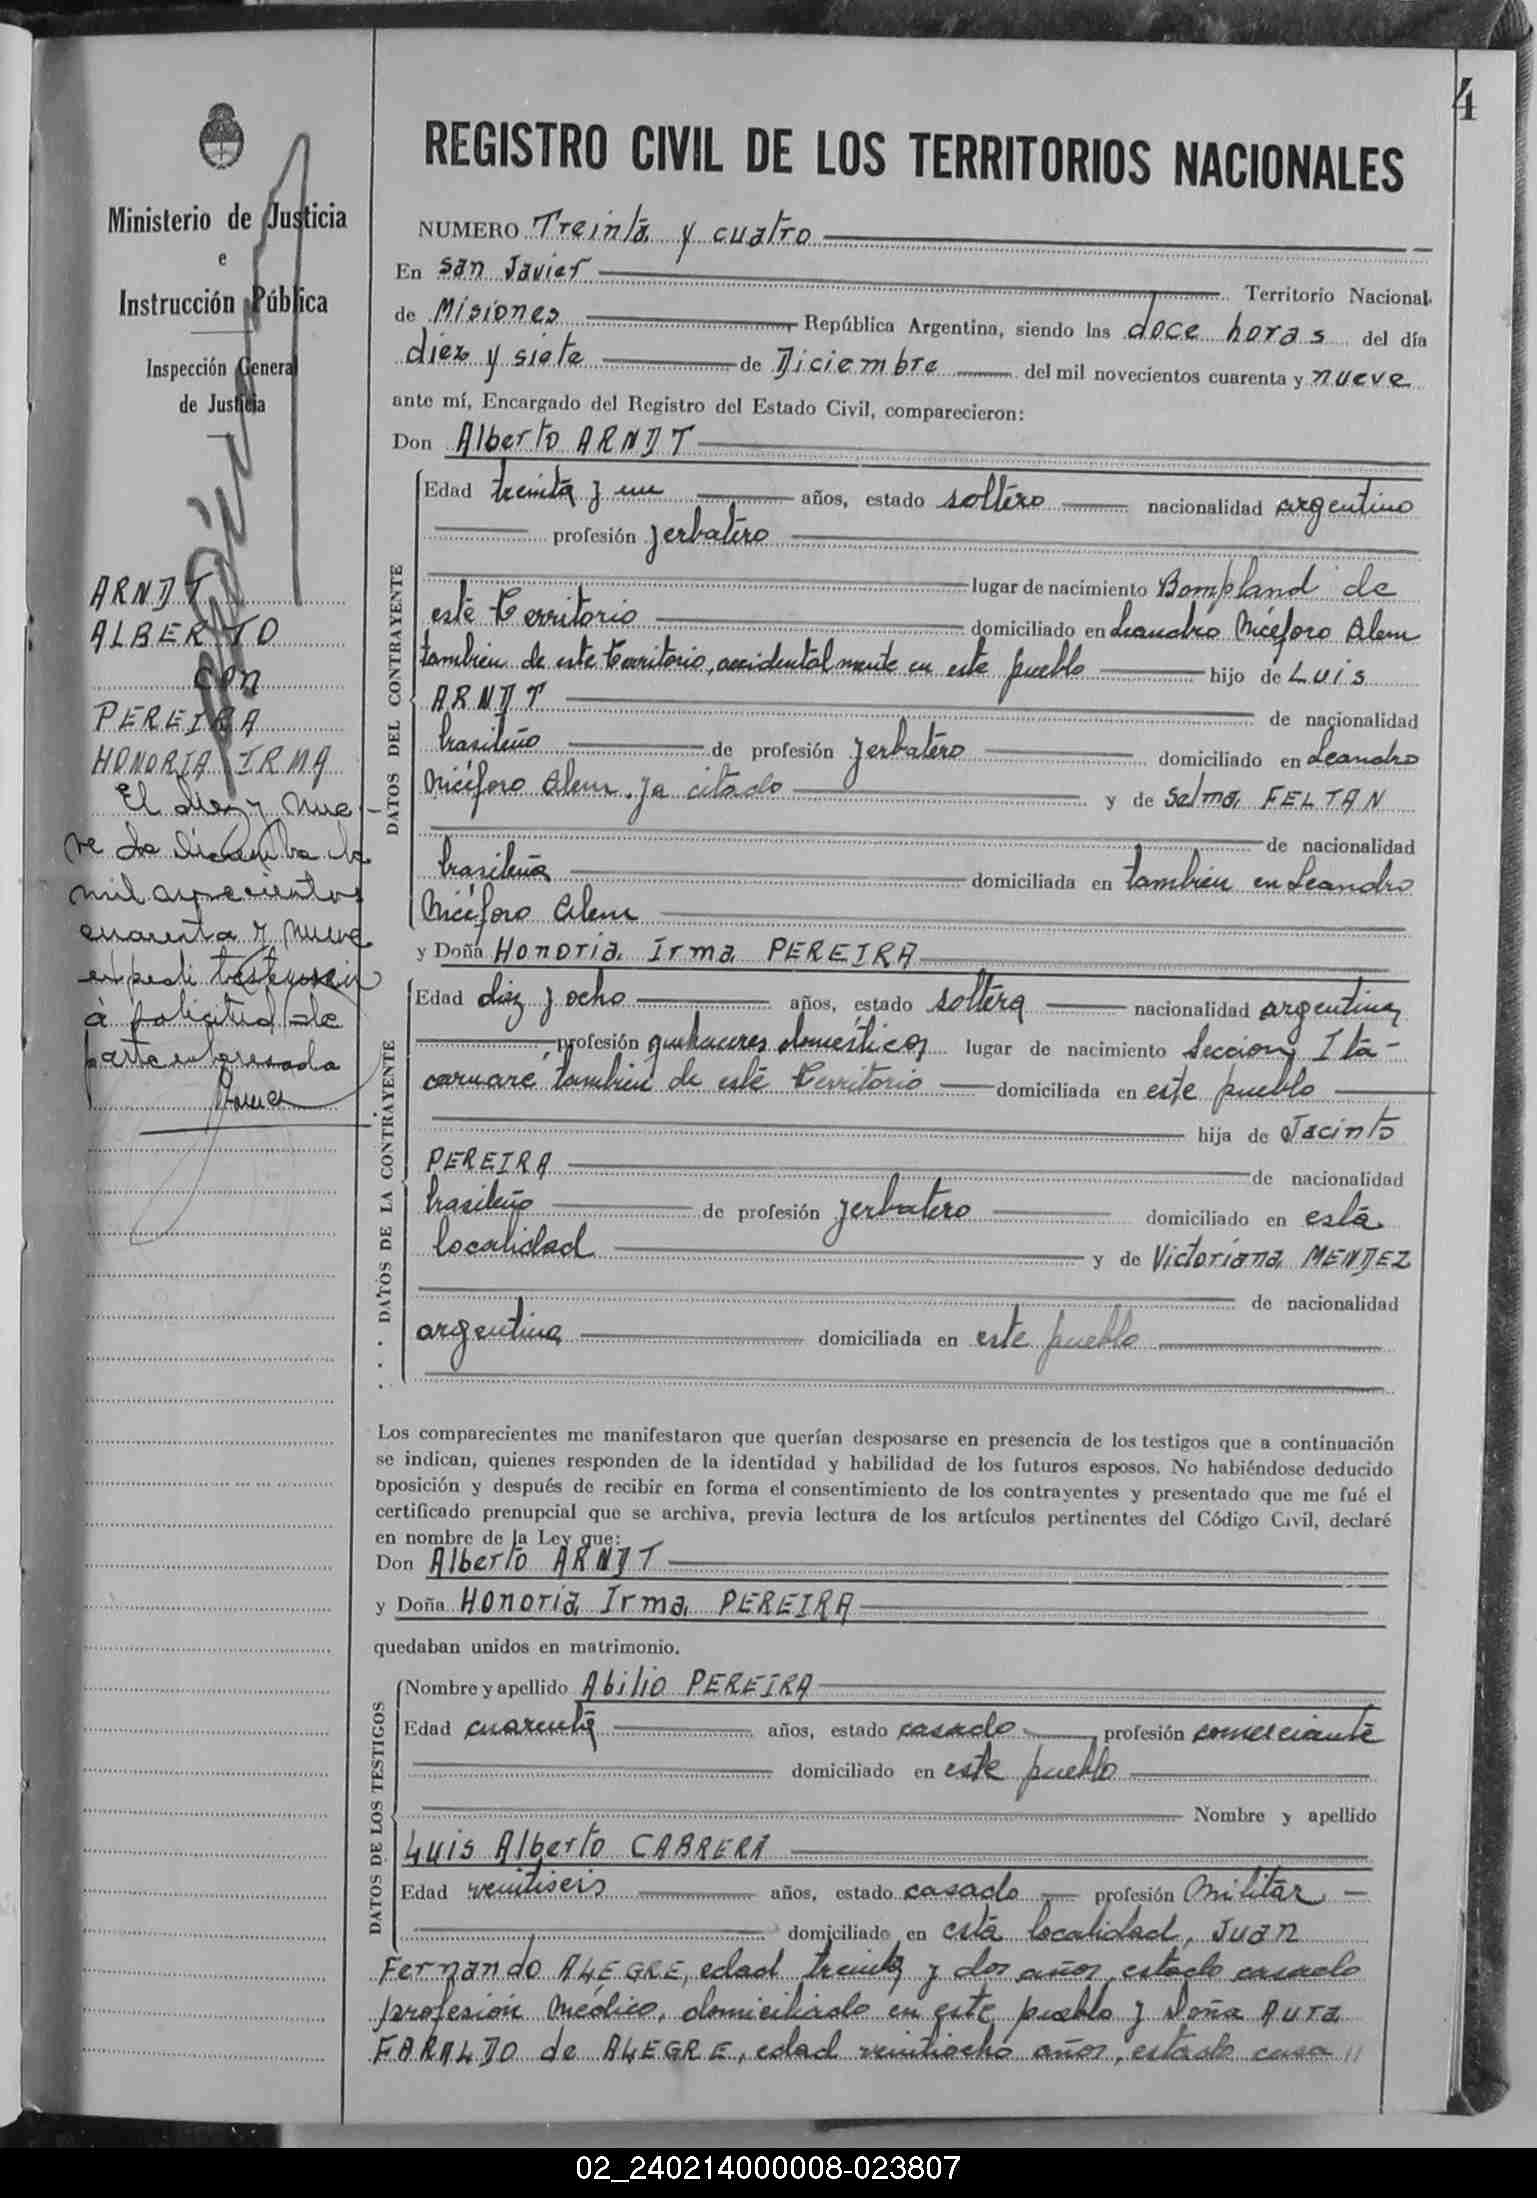 4
Ministerio de Justicia
e
Instrucción Pública
Inspección General
de Justicia
ARNDT
ALBERTO
con
PEREIRA
HONORIA IRMA
El diez y nue-
ve de Diciembre de
mil novecientos
cuarenta y nueve
expedi testimonio
á solicitud de
parte interesada
REGISTRO CIVIL DE LOS TERRITORIOS NACIONALES
NUMERO Treinta y cuatro
En San Javier Territorio Nacional
de Misiones República Argentina, siendo las doce horas del día
diez y siete de Diciembre del mil novecientos cuarenta y nueve
ante mí, Encargado del Registro del Estado Civil, comparecieron:
Don Alberto ARNDT
DATOS DEL CONTRAYENTE
Edad treinta y un años, estado soltero nacionalidad argentino
profesión yerbatero
lugar de nacimiento Bompland de
este Territorio domiciliado en Leandro Nicéforo Alem
tambien de este Territorio, accidentalmente en este pueblo hijo de Luis
ARNDT de nacionalidad
brasileño de profesión yerbatero domiciliado en Leandro
Nicéforo Alem ya citado y de Selma FELTAN
de nacionalidad
brasileña domiciliada en tambien en Leandro
Nicéforo Alem
y Doña Honoria Irma PEREIRA
DATOS DE LA CONTRAYENTE
Edad diez y ocho años, estado soltera nacionalidad argentina
profesión quehaceres domésticos lugar de nacimiento Seccion Ita-
caruaré, tambien de este Territorio domiciliada en este pueblo
hija de Jacinto
PEREIRA de nacionalidad
brasileño de profesión yerbatero domiciliado en esta
localidad y de Victoriana MENDEZ
de nacionalidad
argentina domiciliada en este pueblo
Los comparecientes me manifestaron que querían desposarse en presencia de los testigos que a continuación
se indican, quienes responden de la identidad y habilidad de los futuros esposos. No habiéndose deducido
oposición y después de recibir en forma el consentimiento de los contrayentes y presentado que me fué el
certificado prenupcial que se archiva, previa lectura de los artículos pertinentes del Código Civil, declaré
en nombre de la Ley que:
Don Alberto ARNDT
y Doña Honoria Irma PEREIRA
quedaban unidos en matrimonio.
DATOS DE LOS TESTIGOS
Nombre y apellido Abilio PEREIRA
Edad cuarenta años, estado casado profesión comerciante
domiciliado en este pueblo
Nombre y apellido
Luis Alberto CABRERA
Edad veintiseis años, estado casado profesión Militar
domiciliado en esta localidad, Juan
Fernando ALEGRE, edad treinta y dos años, estado casado
profesión Médico, domiciliado en este pueblo y Doña Aura
FARALDO de ALEGRE, edad veintiocho años, estado casa //
02_240214000008-023807